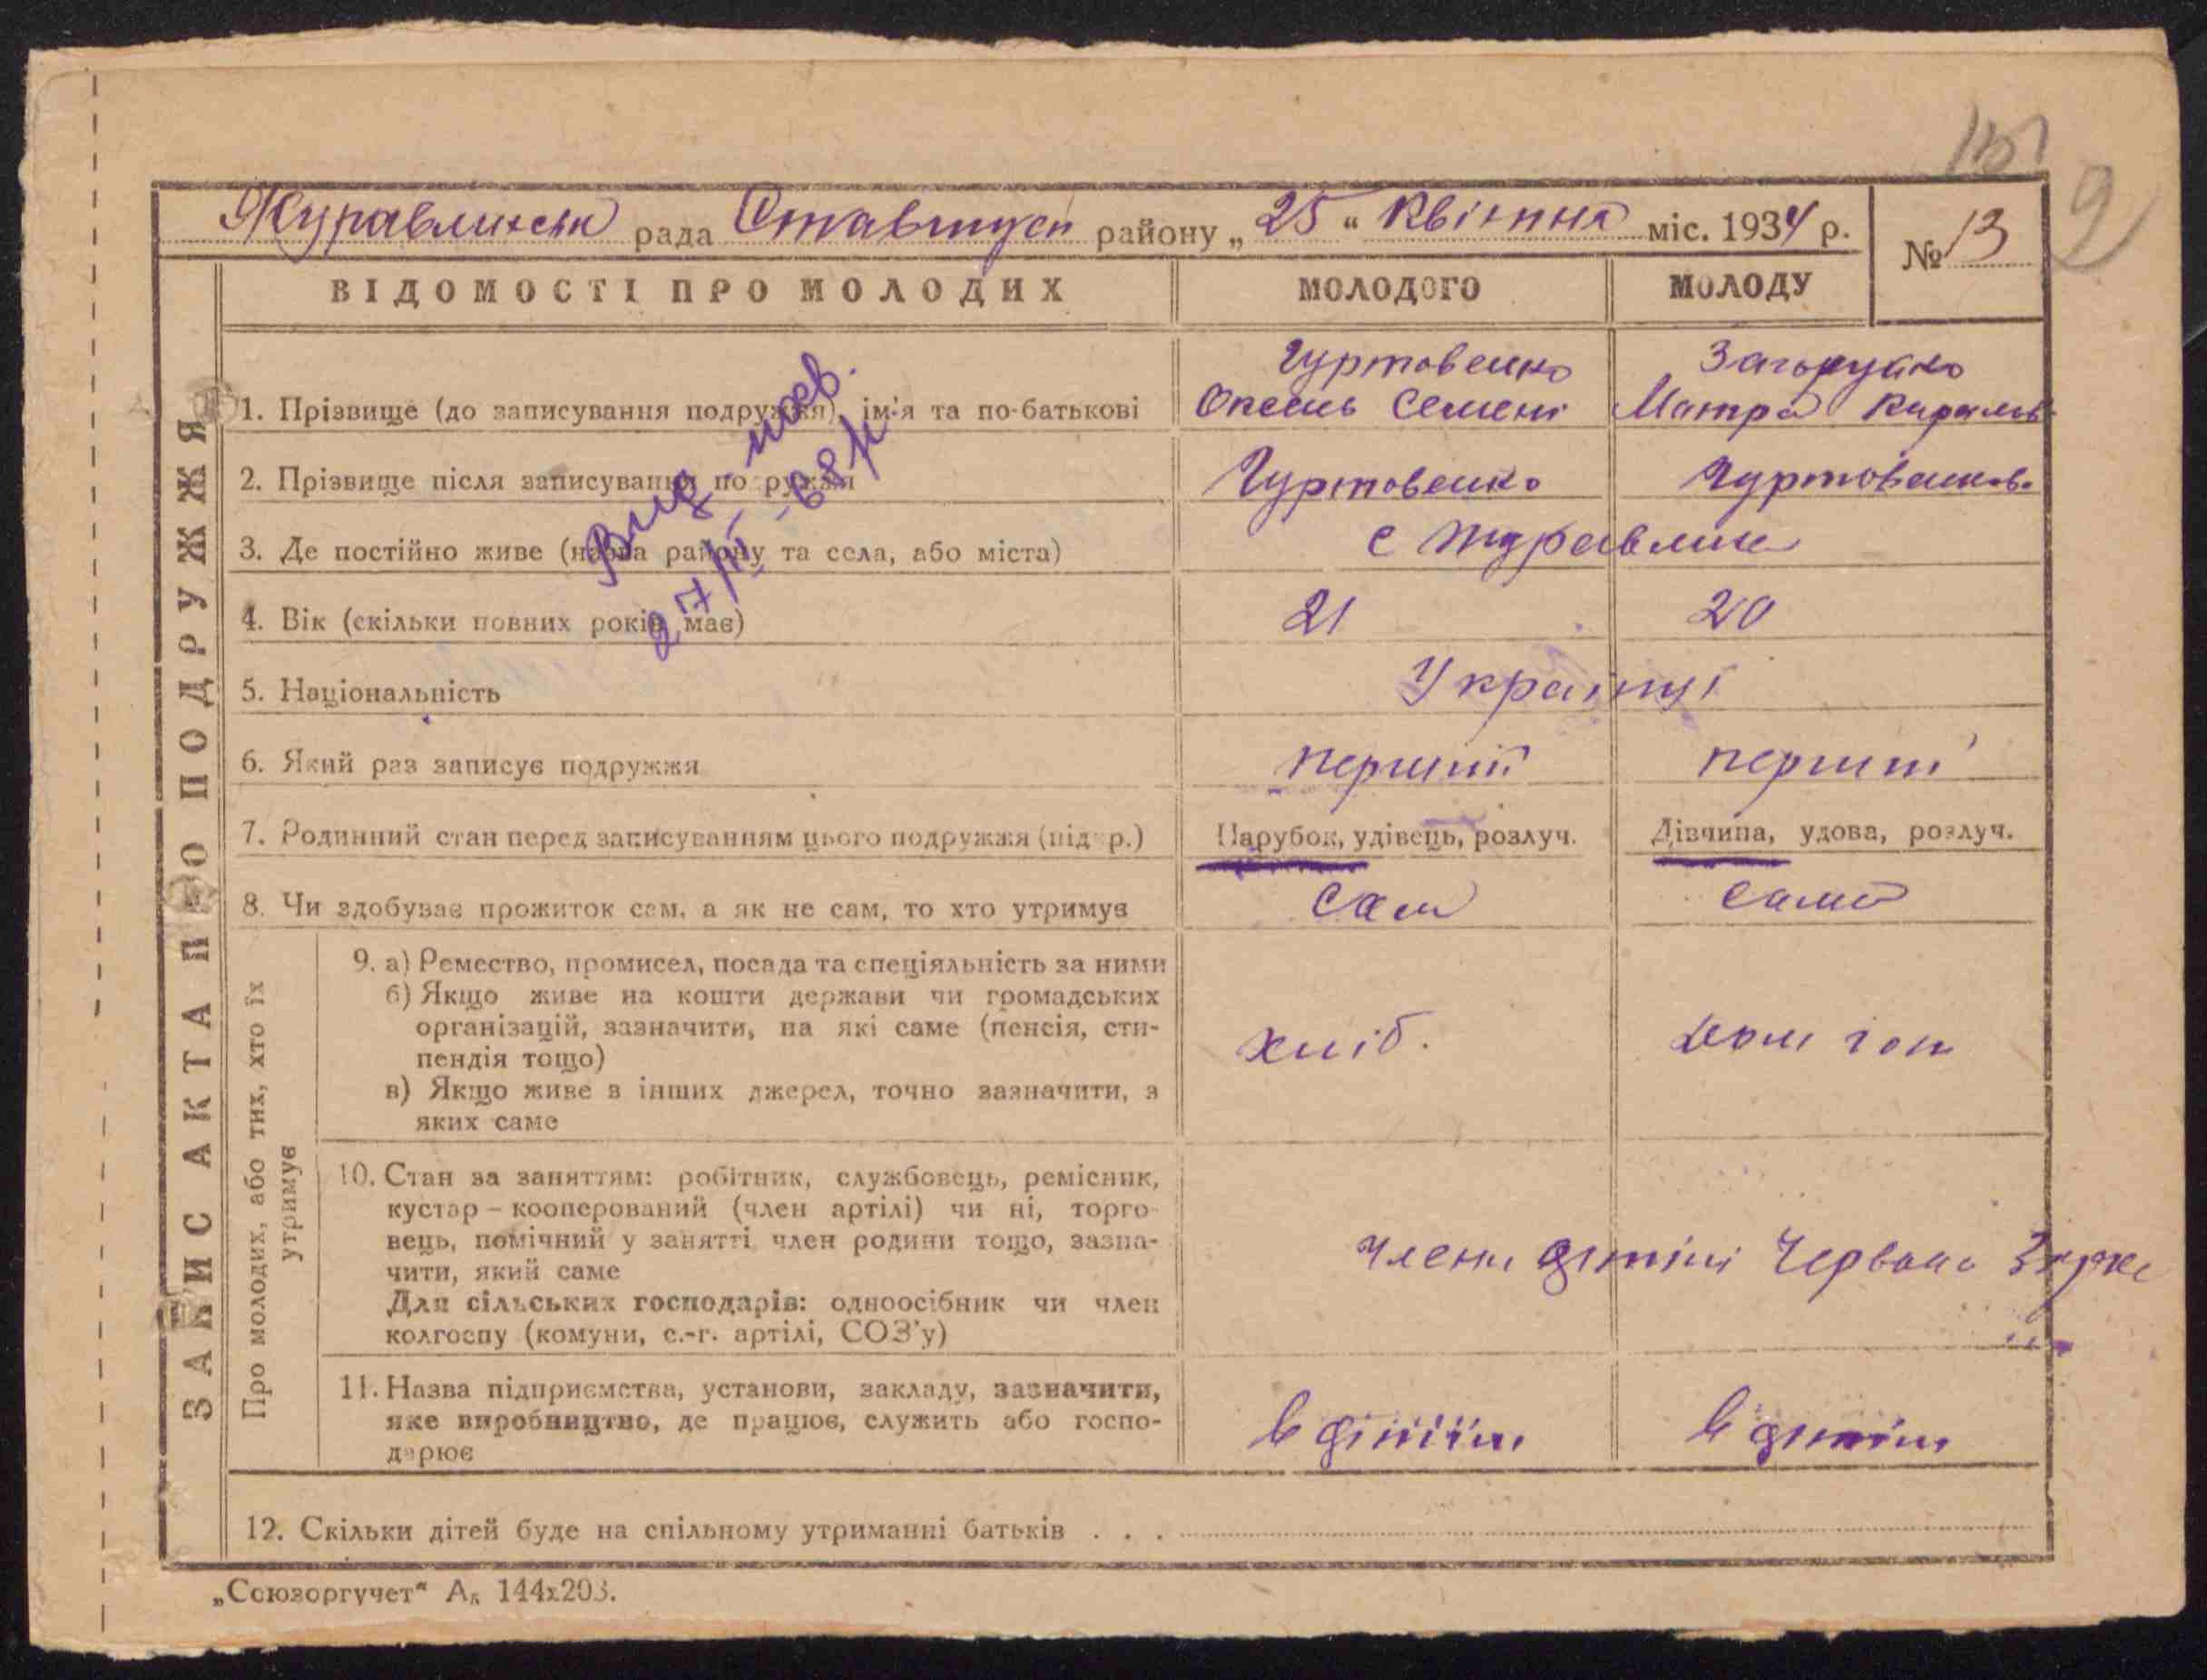 Журавлинськ рада Ставищен району „25“ Квітня міс. 1934 р.
№ 13
2
ВІДОМОСТІ ПРО МОЛОДИХ МОЛОДОГО МОЛОДУ
ЗАПИС АКТА ПРО ПОДРУЖЖЯ
Гуртовенко Загоруйко
1. Прізвище (до записування подружжя), ім'я та по-батькові Семен Матр Кирилов
2. Прізвище після записування подружжя Гуртовенко Гуртовенко
3. Де постійно живе (назва району та села, або міста) с Журавлиха
4. Вік (скільки повних років має) 21 20
5. Національність Українці
6. Який раз записує подружжя перший перший
7. Родинний стан перед записуванням цього подружжя (підкр.) Парубок, удівець, розлуч. Дівчина, удова, розлуч.
8. Чи здобуває прожиток сам, а як не сам, то хто утримує сам сама
Про молодих, або тих, хто їх утримує
9. а) Ремество, промисел, посада та спеціяльність за ними
б) Якщо живе на кошти держави чи громадських
організацій, зазначити, на які саме (пенсія, сти-
пендія тощо)
хліб.
в) Якщо живе з інших джерел, точно зазначити, з
яких саме
10. Стан за заняттям: робітник, службовець, ремісник,
кустар – кооперований (член артілі) чи ні, торго-
вець, помічний у занятті член родини тощо, зазна-
чити, який саме
Для сільських господарів: одноосібник чи член
колгоспу (комуни, с.-г. артілі, СОЗ'у)
члени артілі Червона
11. Назва підприємства, установи, закладу, зазначити,
яке виробництво, де працює, служить або госпо-
дарює
в артілі в артілі
12. Скільки дітей буде на спільному утриманні батьків . . .
27/III-68р
„Союзоргучет“ А₅ 144х203.